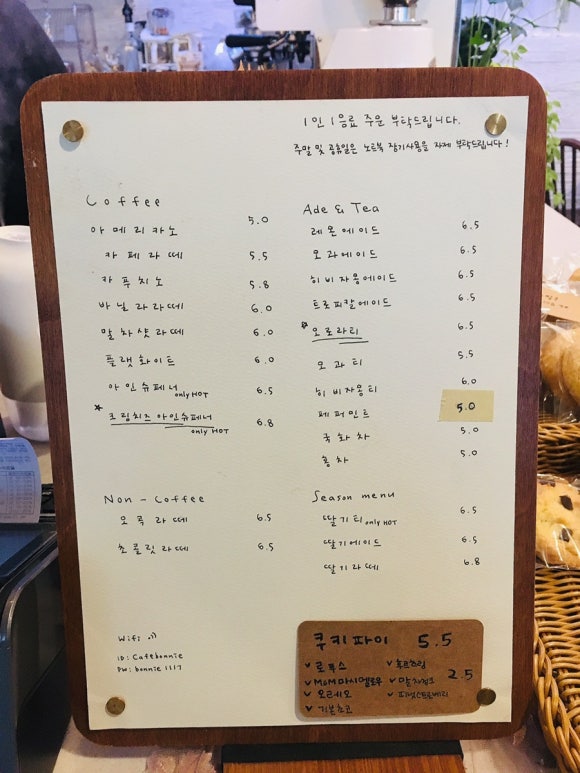 1인 1음료 주문 부탁드립니다.
주말 및 공휴일은 노트북 장기사용을 자제 부탁드립니다!
Coffee
아메리카노 5.0
카페라떼 5.5
카푸치노 5.8
바닐라라떼 6.0
말차샷라떼 6.0
플랫화이트 6.0
아인슈페너 only HOT 6.5
크림치즈 아인슈페너 only HOT 6.8
Non - Coffee
오곡라떼 6.5
초콜릿라떼 6.5
Wifi
ID: Cafebonnie
PW: bonnie1117
Ade & Tea
레몬에이드 6.5
오과에이드 6.5
히비자몽에이드 6.5
트로피칼에이드 6.5
오로라티 6.5
오과티 5.5
히비자몽티 6.0
페퍼민트 5.0
국화차 5.0
홍차 5.0
Season menu
딸기티 only HOT 6.5
딸기에이드 6.5
딸기라떼 6.8
쿠키파이 5.5
로투스
M&M마시멜로우
오레오
기본초코
2.5